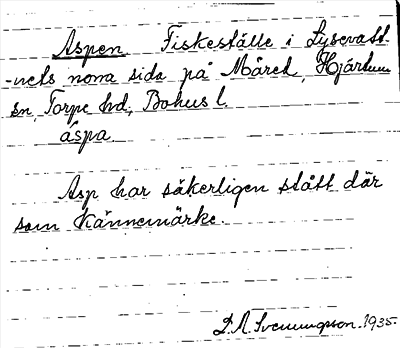 Aspen. Fiskeställe i Lysevatt-
-nets norra sida på Måred, Hjärtum
sn, Torpe hd, Bohus l.
äspa.
Asp har säkerligen stått där
som kännemärke.
D.A. Svenungsson. 1935.